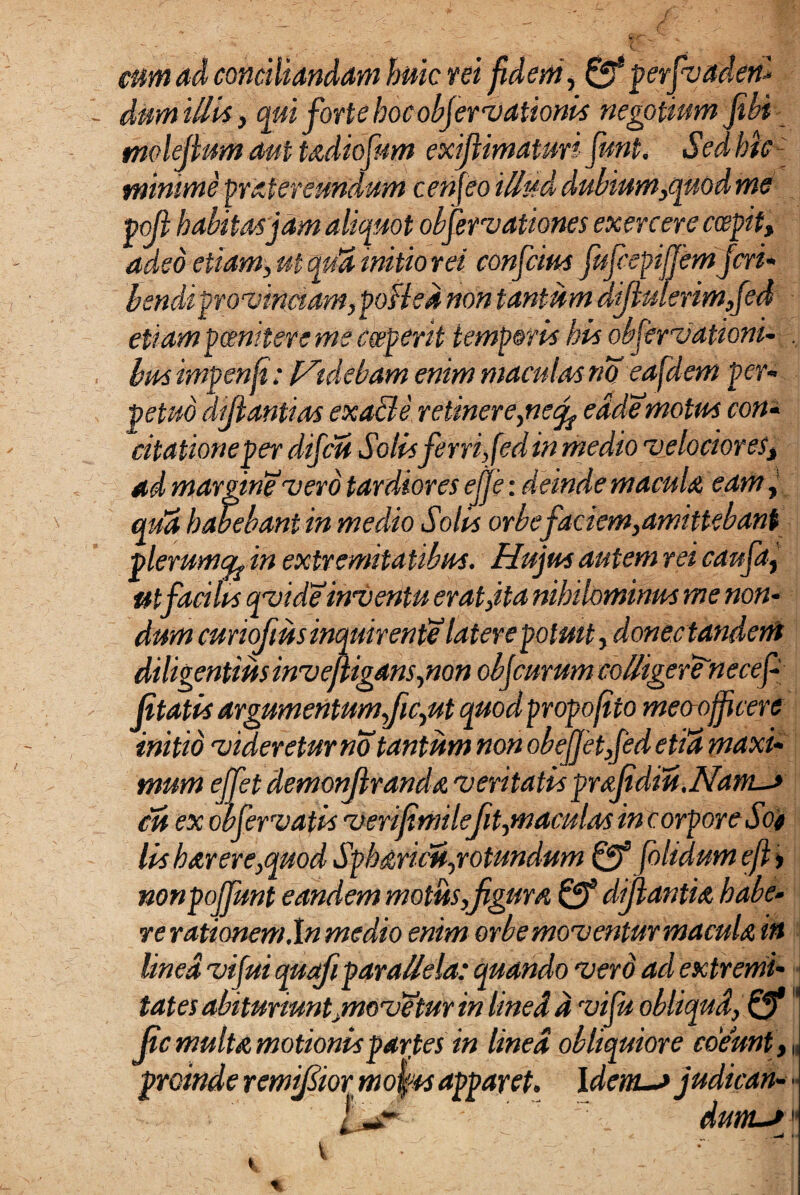 cum ad conciliandam huic rei fidem, & perſvaden-
dum illis, qui forte hoc obſervationis negotium ſibi
moleſtum aut tædioſum exiſtimaturi ſunt. Sed hîc
minimè prætereundum cenſeo illud dubium,quod me
poſt habitas jam aliquot obſervationes exercere cœpit,
adeò etiam, ut quā initio rei conſcius ſuſcepiſſem ſcri-
bendi provinciam,poſteà non tantùm diſtulerim,ſed
etiam pœnitere me cœperit temporis his obſervationi-
bus impenſi: Videbam enim maculas nō eaſdem per-
petuò diſtantias exactè retinere,neqꝫ eādē motus con-
citatione per diſcū Solis ferri,ſed in medio velociores,
ad marginē verò tardiores eſſe: deinde maculæ eam,
quā habebant in medio Solis orbe faciem,amittebant
plerumqꝫ in extremitatibus. Hujus autem rei cauſa,
ut facilis qvidē inventu erat,ita nihilominus me non-
dum curioſiùs inquirentē latere potuit, donec tandem
diligentiùs inveſtigans,non obſcurum colligerē neceſ-
ſitatis argumentum,ſic,ut quod propoſito meo officere
initiò videretur nō tantùm non obeſſet,ſed etiā maxi-
mum eſſet demonſtrandæ veritatis præſidiū.Nam
cū ex obſervatis veriſimile ſit,maculas in corpore So-
lis hærere,quod Sphæricū,rotundum & ſolidum eſt,
non poſſunt eandem motûs,figuræ & diſtantiæ habe-
re rationem.In medio enim orbe moventur maculæ in
lineâ viſui quaſi parallela: quando verò ad extremi-
tates abituriunt,movētur in lineâ à viſu obliquâ, &
ſic multæ motionis partes in lineâ obliquiore coëunt,
proinde remiſsior motus apparet. Idem judican-
dum